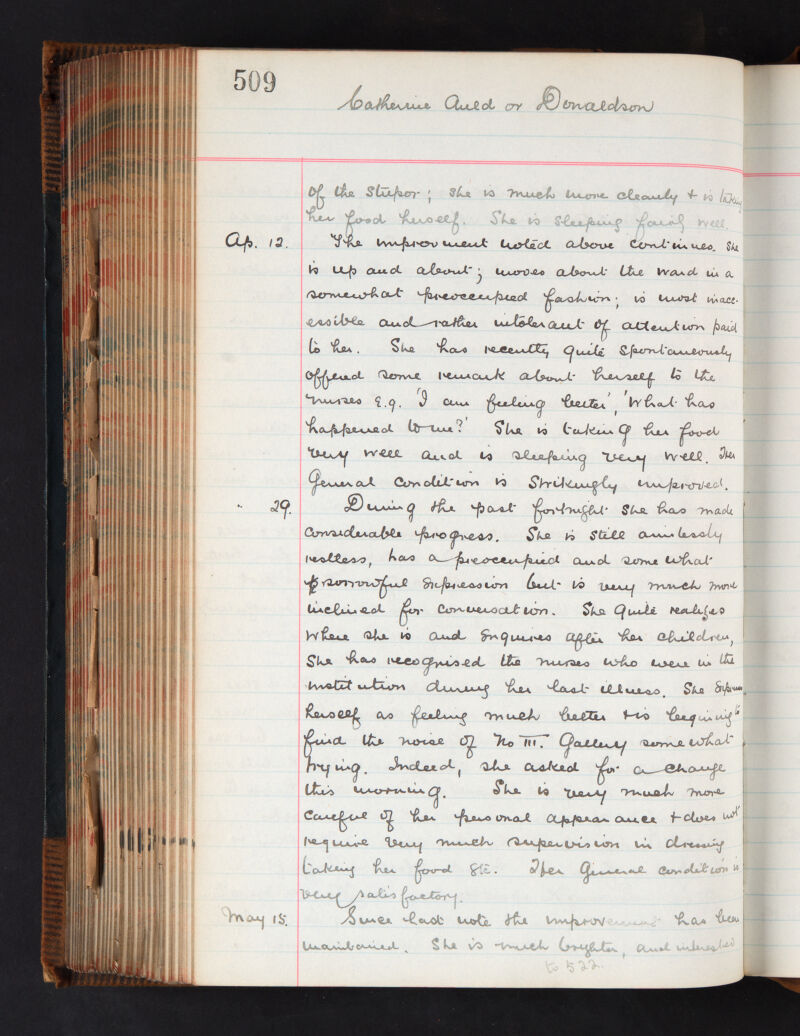 509
Catherine Auld or Donaldson
of the stupor; she is much more cleanly + is taking
her food herself. She is sleeping fairly well.
Ap. 12. The improvement noted above continues. She
is up and about; moves about the ward in a
somewhat preoccupied fashion; is most inacc-
essible and rather intolerant of attention paid
to her. She has recently quite spontaneously
offered some remark about herself to the
nurses e.g. 'I am feeling better', 'What has
happened to me?' She is taking her food
very well and is sleeping very well. Her
General condition is strikingly improved.
" 29. During the past fortnight she has made
considerable progress. She is still aimlessly
restless, has a preoccupied and somewhat
sorrowful expression but is very much more
inclined for conversation. She quite realises
where she is and enquires after her children,
She has recognised the nurses who were in the
institution during her last illness. She express
herself as feeling much better + is beginning to
find the noise of No III. Gallery somewhat
trying. Indeed, she asked for a change
this morning. She is very much more
careful of her personal appearance + does not
require very much supervision in dressing
taking her food &c. Her General condition is
very satisfactory.
May 15. Since last note the improvement has been
maintained. She is much brighter, and interested
to 522.